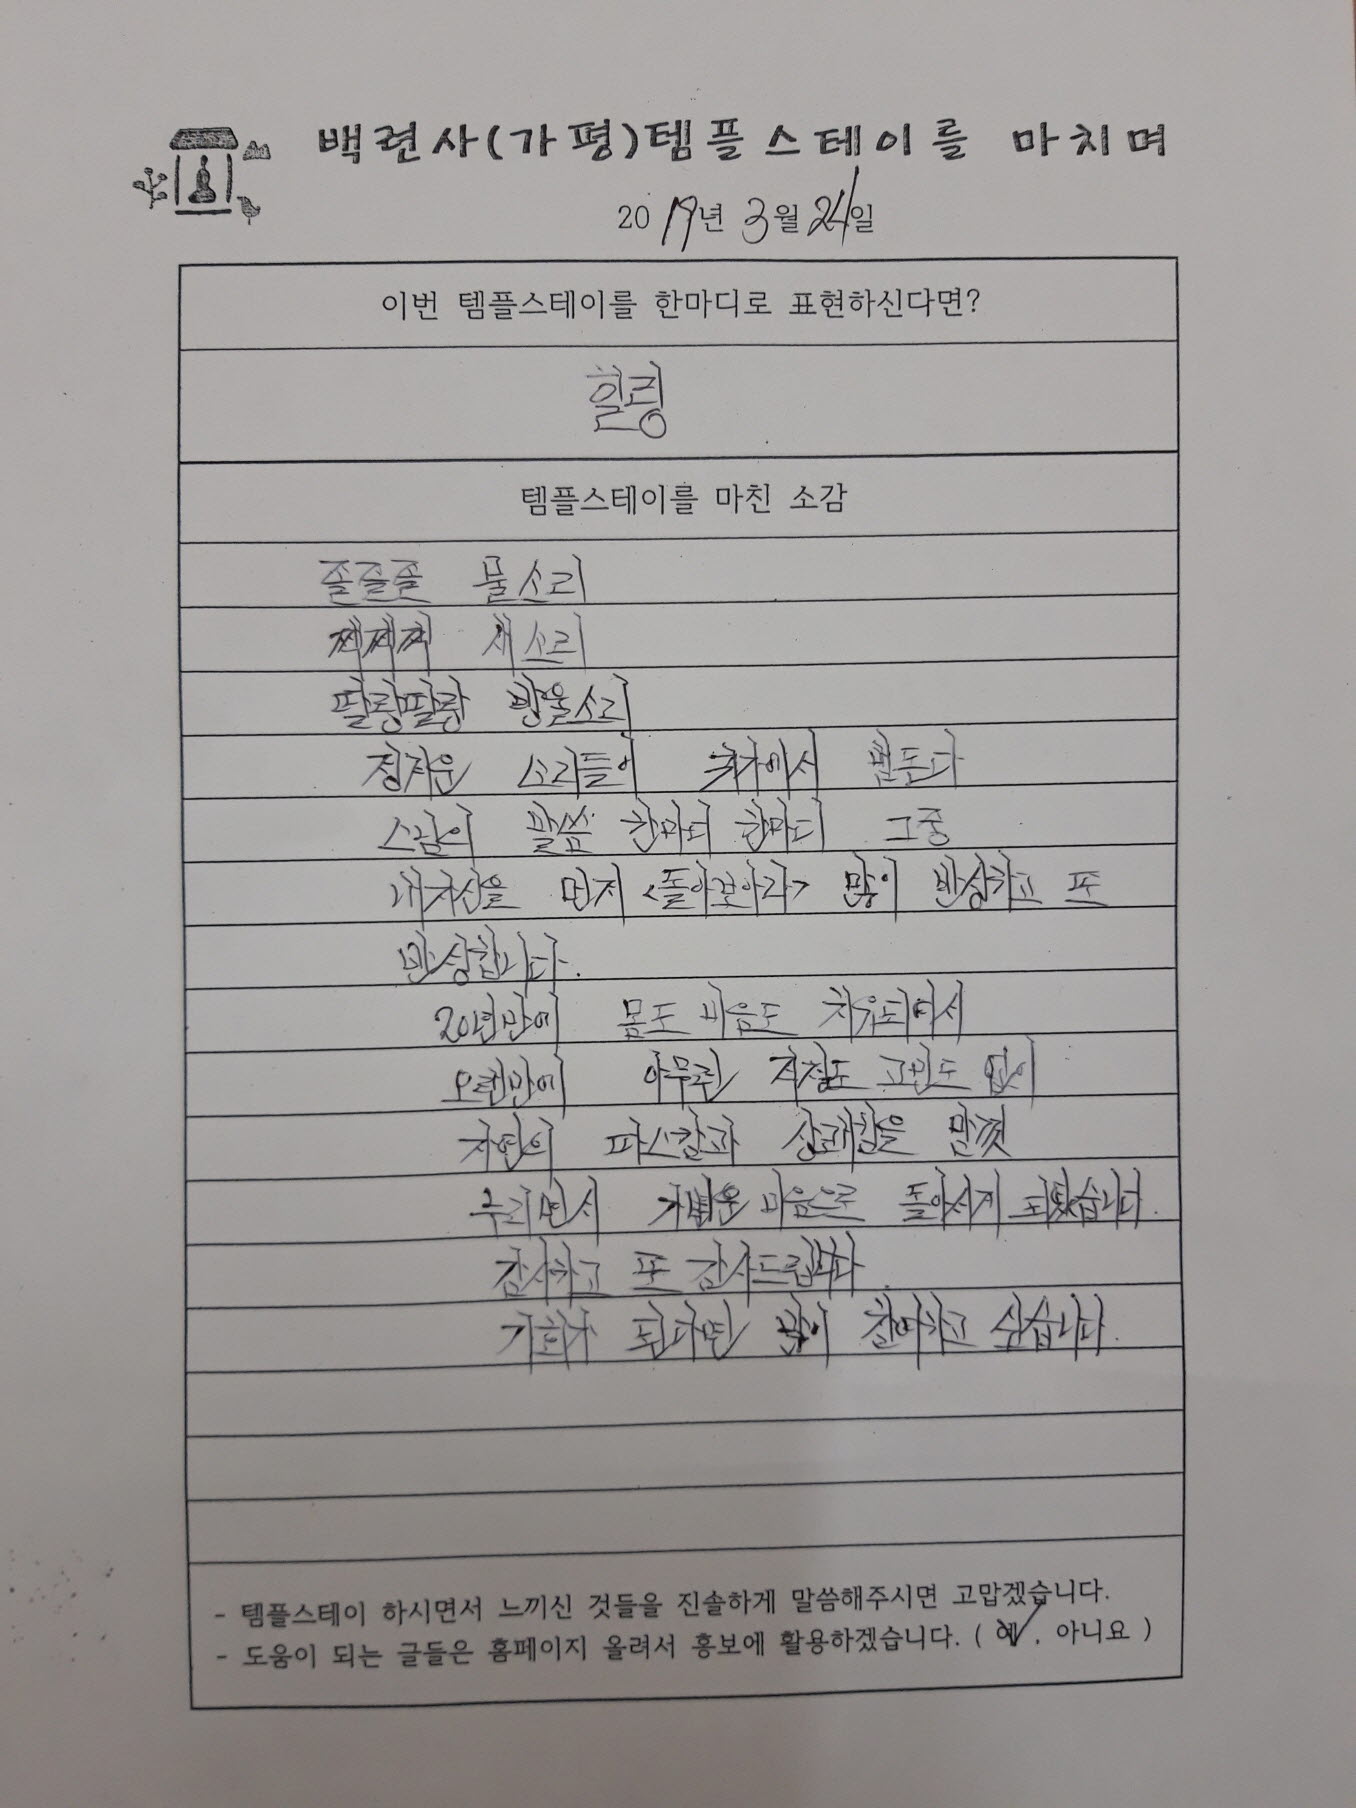 백련사(가평)템플스테이를 마치며
2019년 3월 24일
이번 템플스테이를 한마디로 표현하신다면?
힐링
템플스테이를 마친 소감
졸졸졸 물소리
찍찍찍 새소리
딸랑딸랑 방울소리
정겨운 소리들이 귓가에서 맴돈다
스님의 말씀 한마디 한마디 그중
내자신을 먼저 <돌아보아라> 많이 반성하고 또
반성합니다.
20년만에 몸도 마음도 치유되어서
오랜만에 아무런 걱정도 고민도 없이
자연의 파스칼과 상쾌함을 만끽
누리면서 가벼운 마음으로 돌아서게 되었습니다.
감사하고 또 감사드립니다.
기회가 된다면 많이 참여하고 싶습니다.
- 템플스테이 하시면서 느끼신 것들을 진솔하게 말씀해주시면 고맙겠습니다.
- 도움이 되는 글들은 홈페이지 올려서 홍보에 활용하겠습니다. ( 예, 아니요 )